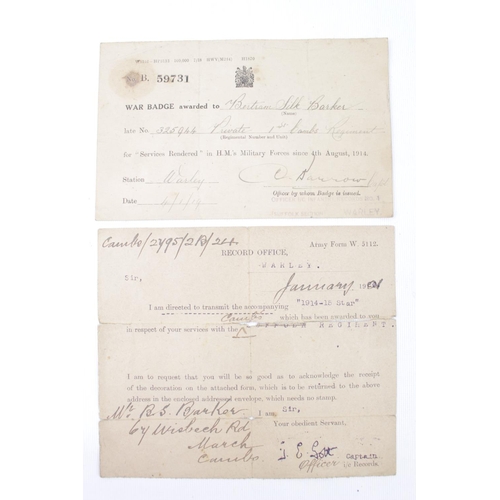 B. 59731
WAR BADGE awarded to Bertram Silk Barker
(Name)
late No. 325944 Private 1st Cambs Regiment
(Regimental Number and Unit)
for "Services Rendered" in H.M.'s Military Forces since 4th August, 1914.
Station Warley
Officer by whom Badge is issued.
Date
Cambs/2495/2B/244
Army Form W. 5112.
RECORD OFFICE,
WARLEY.
Sir,
January
I am directed to transmit the accompanying "1914-15 Star"
Cambs which has been awarded to you
in respect of your services with the REGIMENT.
I am to request that you will be so good as to acknowledge the receipt
of the decoration on the attached form, which is to be returned to the above
address in the enclosed addressed envelope, which needs no stamp.
I am Sir,
Mr. B S. Barker
Your obedient Servant,
64 Wisbech Rd
March
Cambs
Captain
Officer i/c Records.